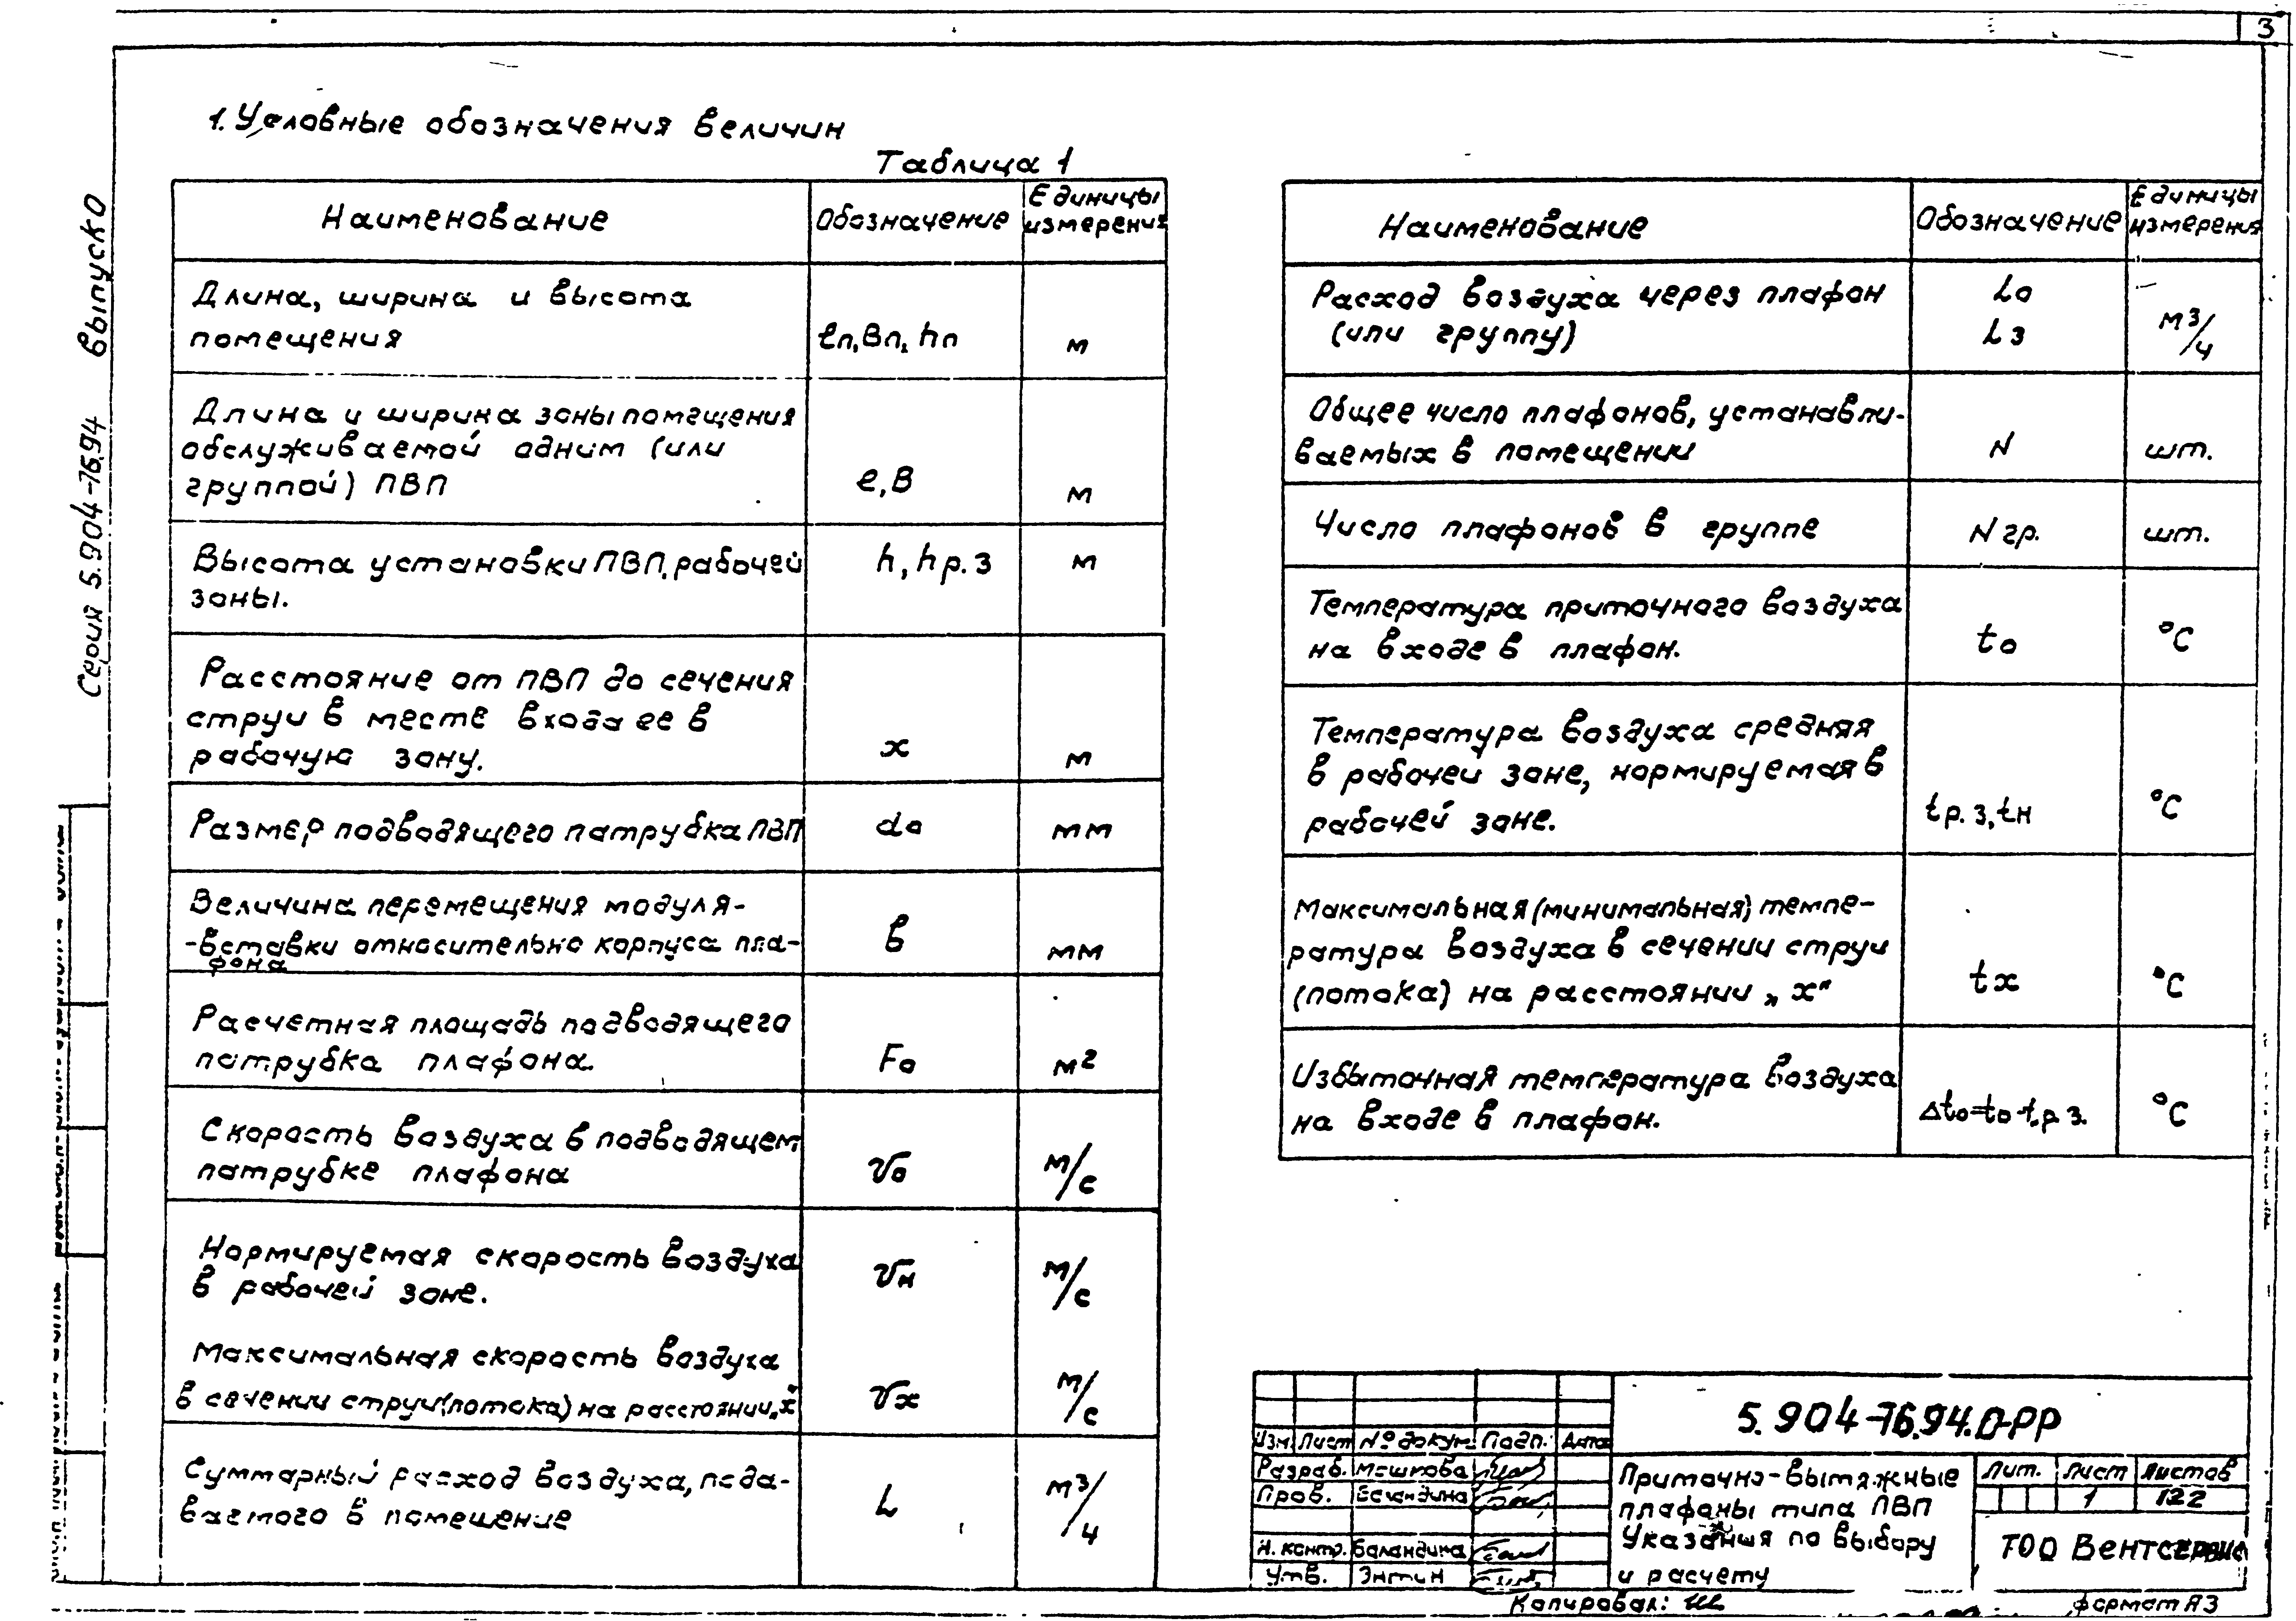 3
1. Условные обозначения величин
Таблица 1
Наименование
Обозначение
Единицы
измерения
Длина, ширина и высота
помещения
ℓп, Вп, hп
м
Длина и ширина зоны помещения
обслуживаемой одним (или
группой) ПВП
ℓ, В
м
Высота установки ПВП, рабочей
зоны.
h, hр.з
м
Расстояние от ПВП до сечения
струи в месте входа ее в
рабочую зону.
х
м
Размер подводящего патрубка ПВП
dо
мм
Величина перемещения модуля-
-вставки относительно корпуса пла-
фона
в
мм
Расчетная площадь подводящего
патрубка плафона.
Fо
м²
Скорость воздуха в подводящем
патрубке плафона
Vо
м/с
Нормируемая скорость воздуха
в рабочей зоне.
Vн
м/с
Максимальная скорость воздуха
в сечении струи (потока) на расстоянии „х"
Vх
м/с
Суммарный расход воздуха, пода-
ваемого в помещение
L
м³/ч
Наименование
Обозначение
Единицы
измерения
Расход воздуха через плафон
(или группу)
Lо
Lз
м³/ч
Общее число плафонов, устанавли-
ваемых в помещении
N
шт.
Число плафонов в группе
N гр.
шт.
Температура приточного воздуха
на входе в плафон.
tо
°С
Температура воздуха средняя
в рабочей зоне, нормируемая в
рабочей зоне.
tр.з, tн
°С
Максимальная (минимальная) темпе-
ратура воздуха в сечении струи
(потока) на расстоянии „х"
tх
°С
Избыточная температура воздуха
на входе в плафон.
Δtо=tо-tр.з.
°С
Серия 5.904-76.94 выпуск 0
5.904-76.94.0-РР
Изм. Лист № докум. Подп. Дата
Разраб. Мешкова
Пров.
Н. контр. Баландина
Утв. Энтин
Приточно-вытяжные
плафоны типа ПВП
Указания по выбору
и расчету
Лит. Лист Листов
1 122
ТОО Вентсервис
Копировал:
формат А3